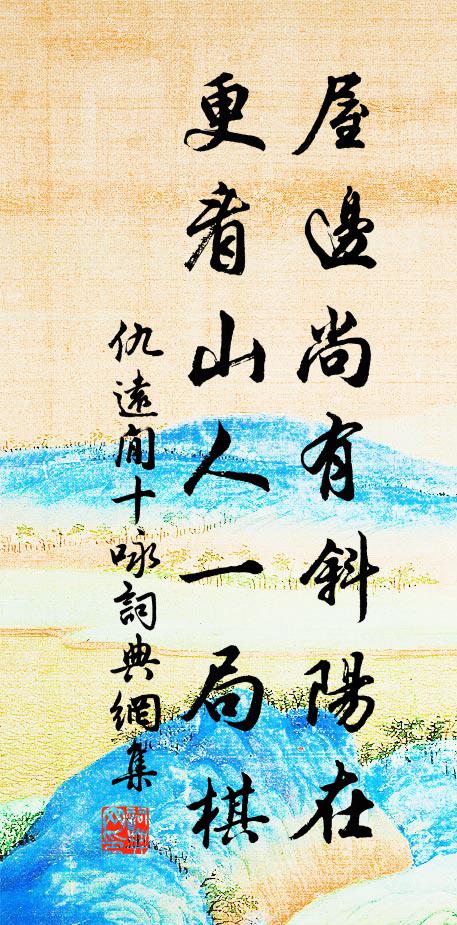 屋邊尚有斜陽在
更看山人一局棋
仇遠閒十咏詞典網集